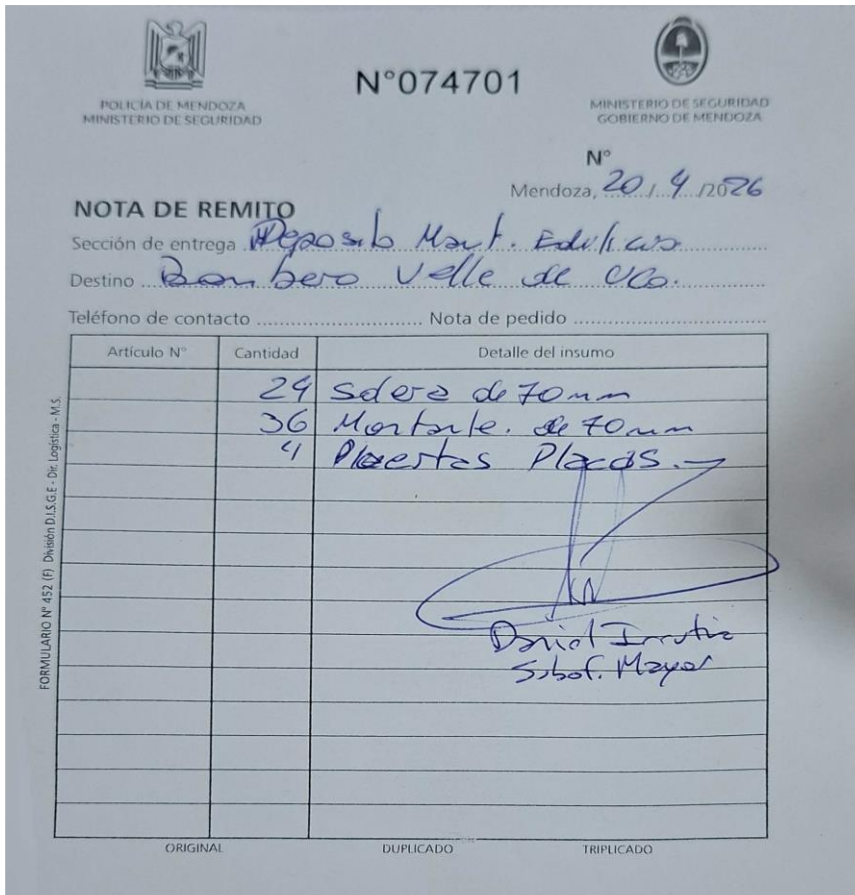 POLICÍA DE MENDOZA
MINISTERIO DE SEGURIDAD
N°074701
MINISTERIO DE SEGURIDAD
GOBIERNO DE MENDOZA
N°
Mendoza, 20 / 4 /2026
NOTA DE REMITO
Sección de entrega Deposito Mant. Edilicio
Destino Bombero Valle de Uco.
Teléfono de contacto ........................ Nota de pedido ........................
Artículo N° Cantidad Detalle del insumo
24 Solera de 70mm
36 Montante. de 70mm
4 Puertas Placas.-
David Irrutia
Subof. Mayor
FORMULARIO N° 452 (F) División D.I.S.G.E - Dir. Logística - M.S.
ORIGINAL DUPLICADO TRIPLICADO